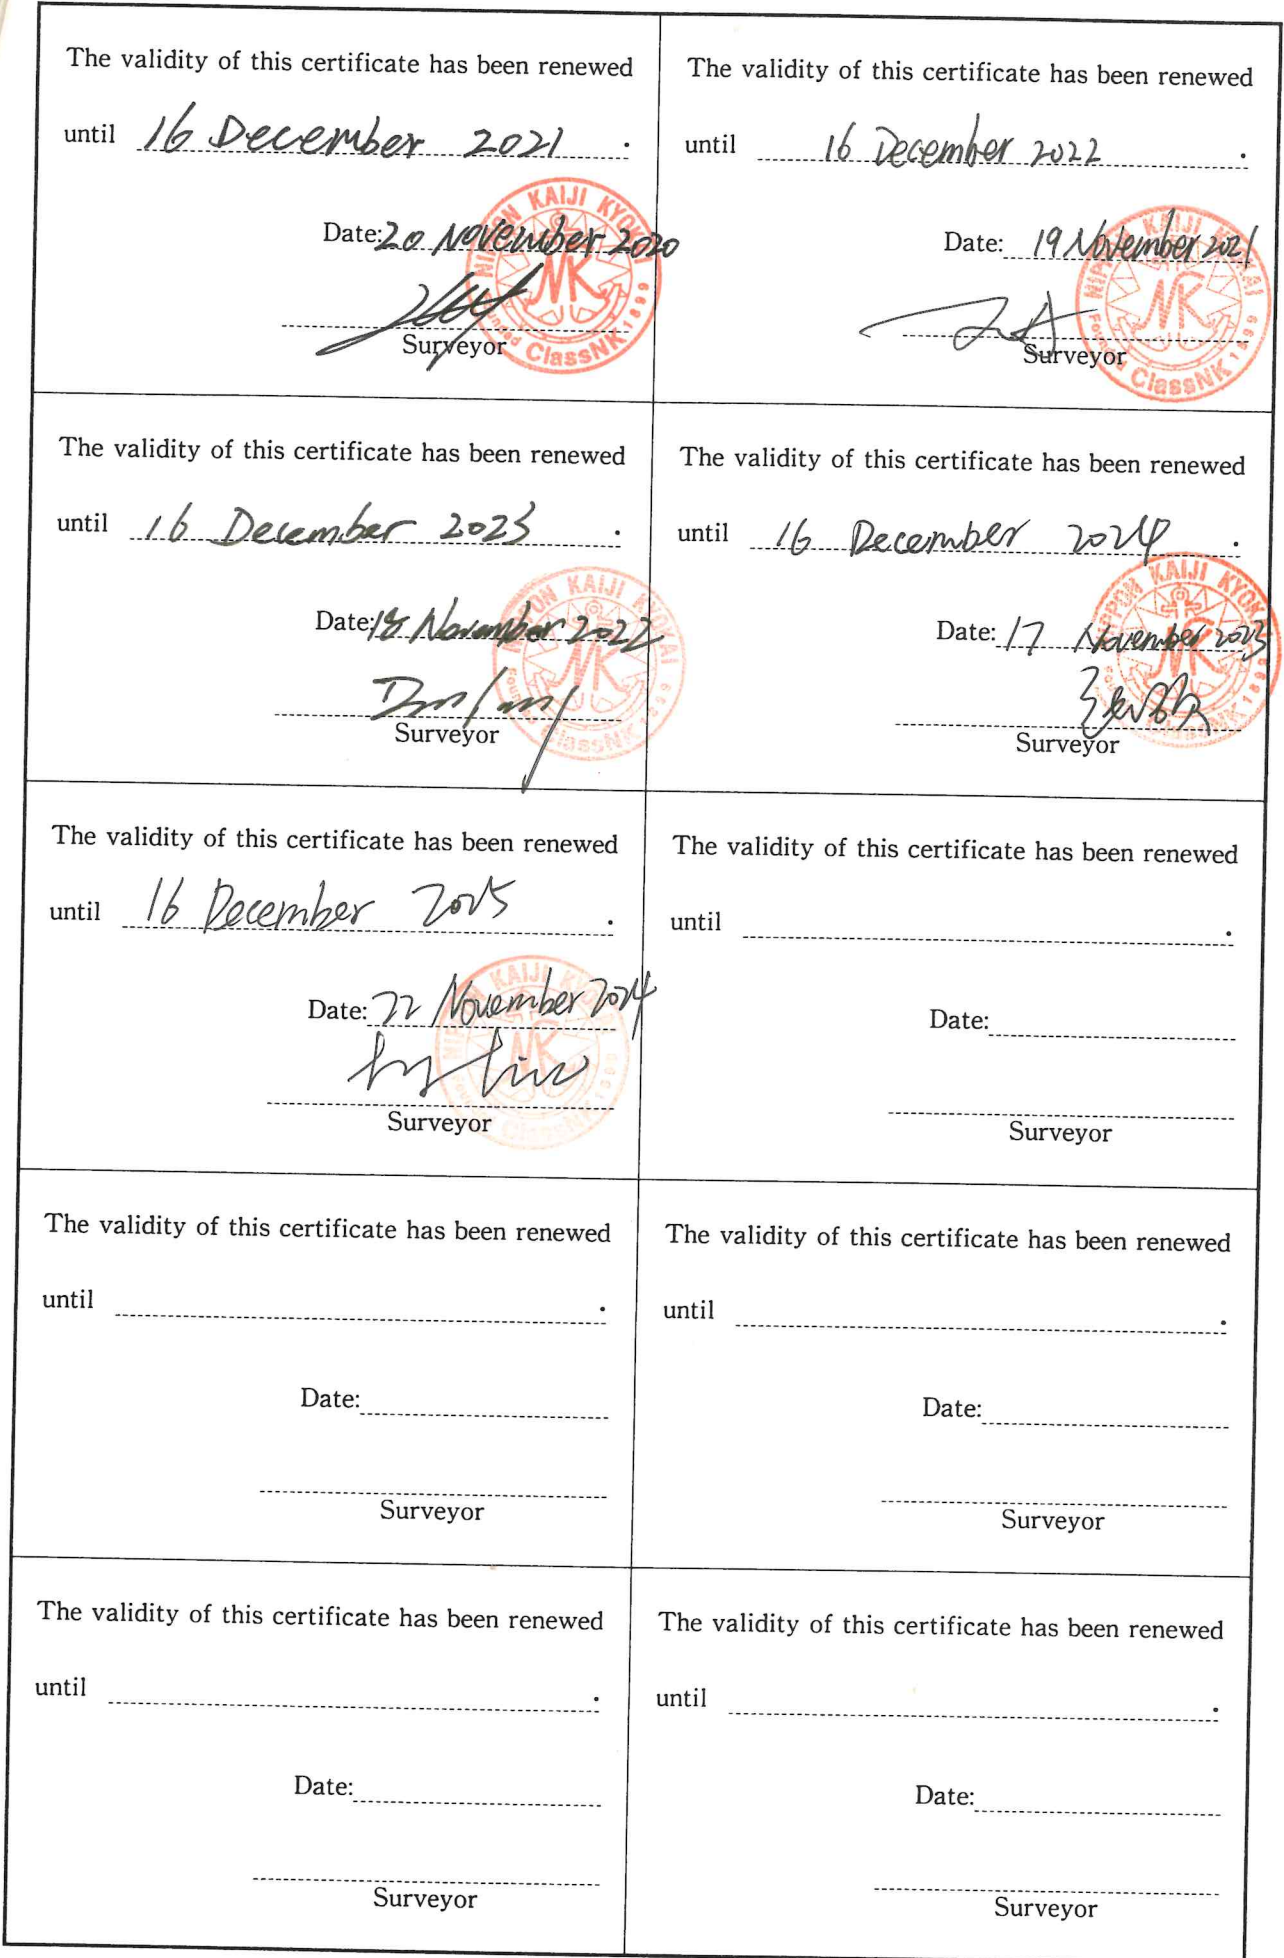 The validity of this certificate has been renewed
until 16 December 2021 .
Date: 20 November 2020
Surveyor
NIPPON KAIJI KYOKAI
NK
Founded ClassNK 1899
The validity of this certificate has been renewed
until 16 December 2022 .
Date: 19 November 2021
Surveyor
NIPPON KAIJI KYOKAI
NK
Founded ClassNK 1899
The validity of this certificate has been renewed
until 16 December 2023 .
Date: 18 November 2022
Surveyor
NIPPON KAIJI KYOKAI
NK
Founded ClassNK 1899
The validity of this certificate has been renewed
until 16 December 2024 .
Date: 17 November 2023
Surveyor
NIPPON KAIJI KYOKAI
NK
ClassNK 1899
The validity of this certificate has been renewed
until 16 December 2025 .
Date: 22 November 2024
Surveyor
NIPPON KAIJI KYOKAI
NK
Founded ClassNK 1899
The validity of this certificate has been renewed
until .
Date:
Surveyor
The validity of this certificate has been renewed
until .
Date:
Surveyor
The validity of this certificate has been renewed
until .
Date:
Surveyor
The validity of this certificate has been renewed
until .
Date:
Surveyor
The validity of this certificate has been renewed
until .
Date:
Surveyor